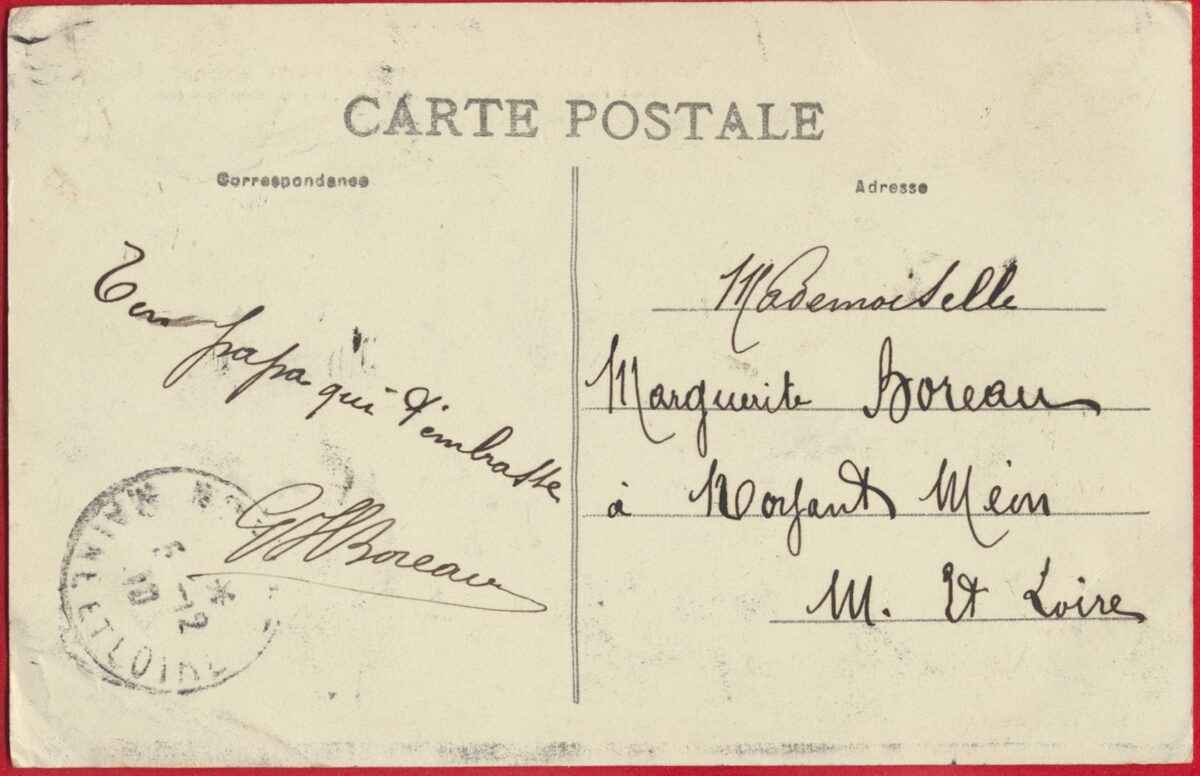 CARTE POSTALE
Correspondance
Ton papa qui t'embrasse
Boreau
Adresse
Mademoiselle
Marguerite Boreau
à Noyant Méon
M. Et Loire
MAINE ET LOIRE
5-12